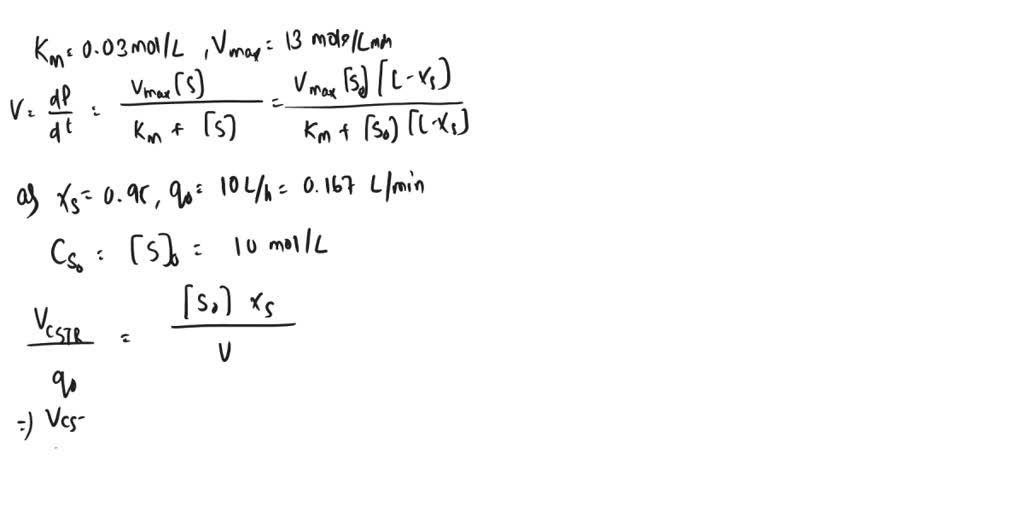 Km = 0.03 mol/L , Vmax = 13 mole/Lmin
V = dP/dt = Vmax [S] / Km + [S] = Vmax [S0] [1-Xs] / Km + [S0] [1-Xs]
a) Xs = 0.95, q0 = 10 L/h = 0.167 L/min
Cs0 = [S]0 = 10 mol/L
VCSTR / q0 = [S0] Xs / V
=) Vcs-